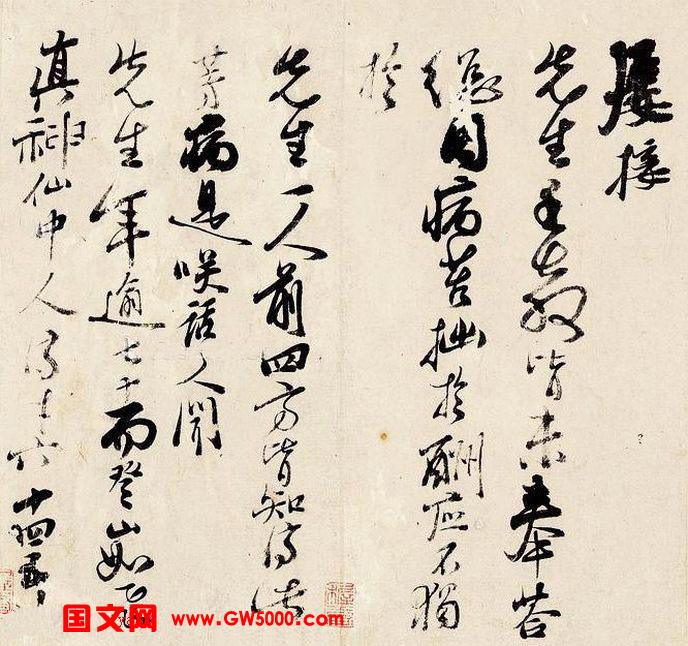 屢接
先生手教皆未奉荅
總因病苦拙於酬應不獨
於
先生一人前四方皆知濟此
等病是咲話人聞
先生年逾七十而登山如飛
真神仙中人濟才六十四五
国文网 www.GW5000.com